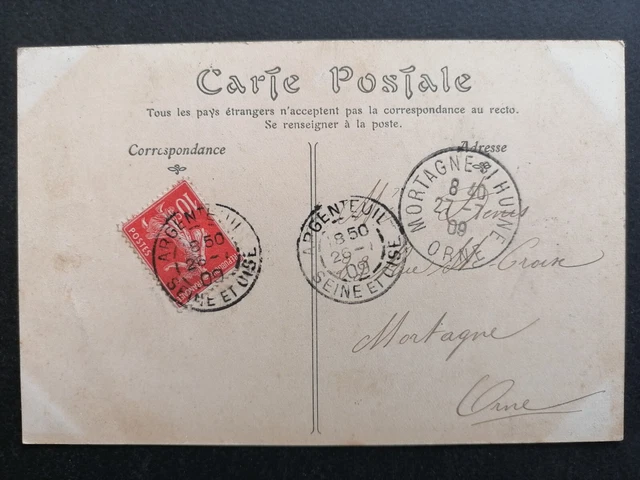 Carte Postale
Tous les pays étrangers n'acceptent pas la correspondance au recto.
Se renseigner à la poste.
Correspondance
Adresse
10
POSTES
ARGENTEUIL
8 50
26 -
09
SEINE ET OISE
ARGENTEUIL
8 50
26 -
09
SEINE ET OISE
MORTAGNE S/ HUINE
8 40
27 - 1
09
ORNE
Croix
Mortagne
Orne